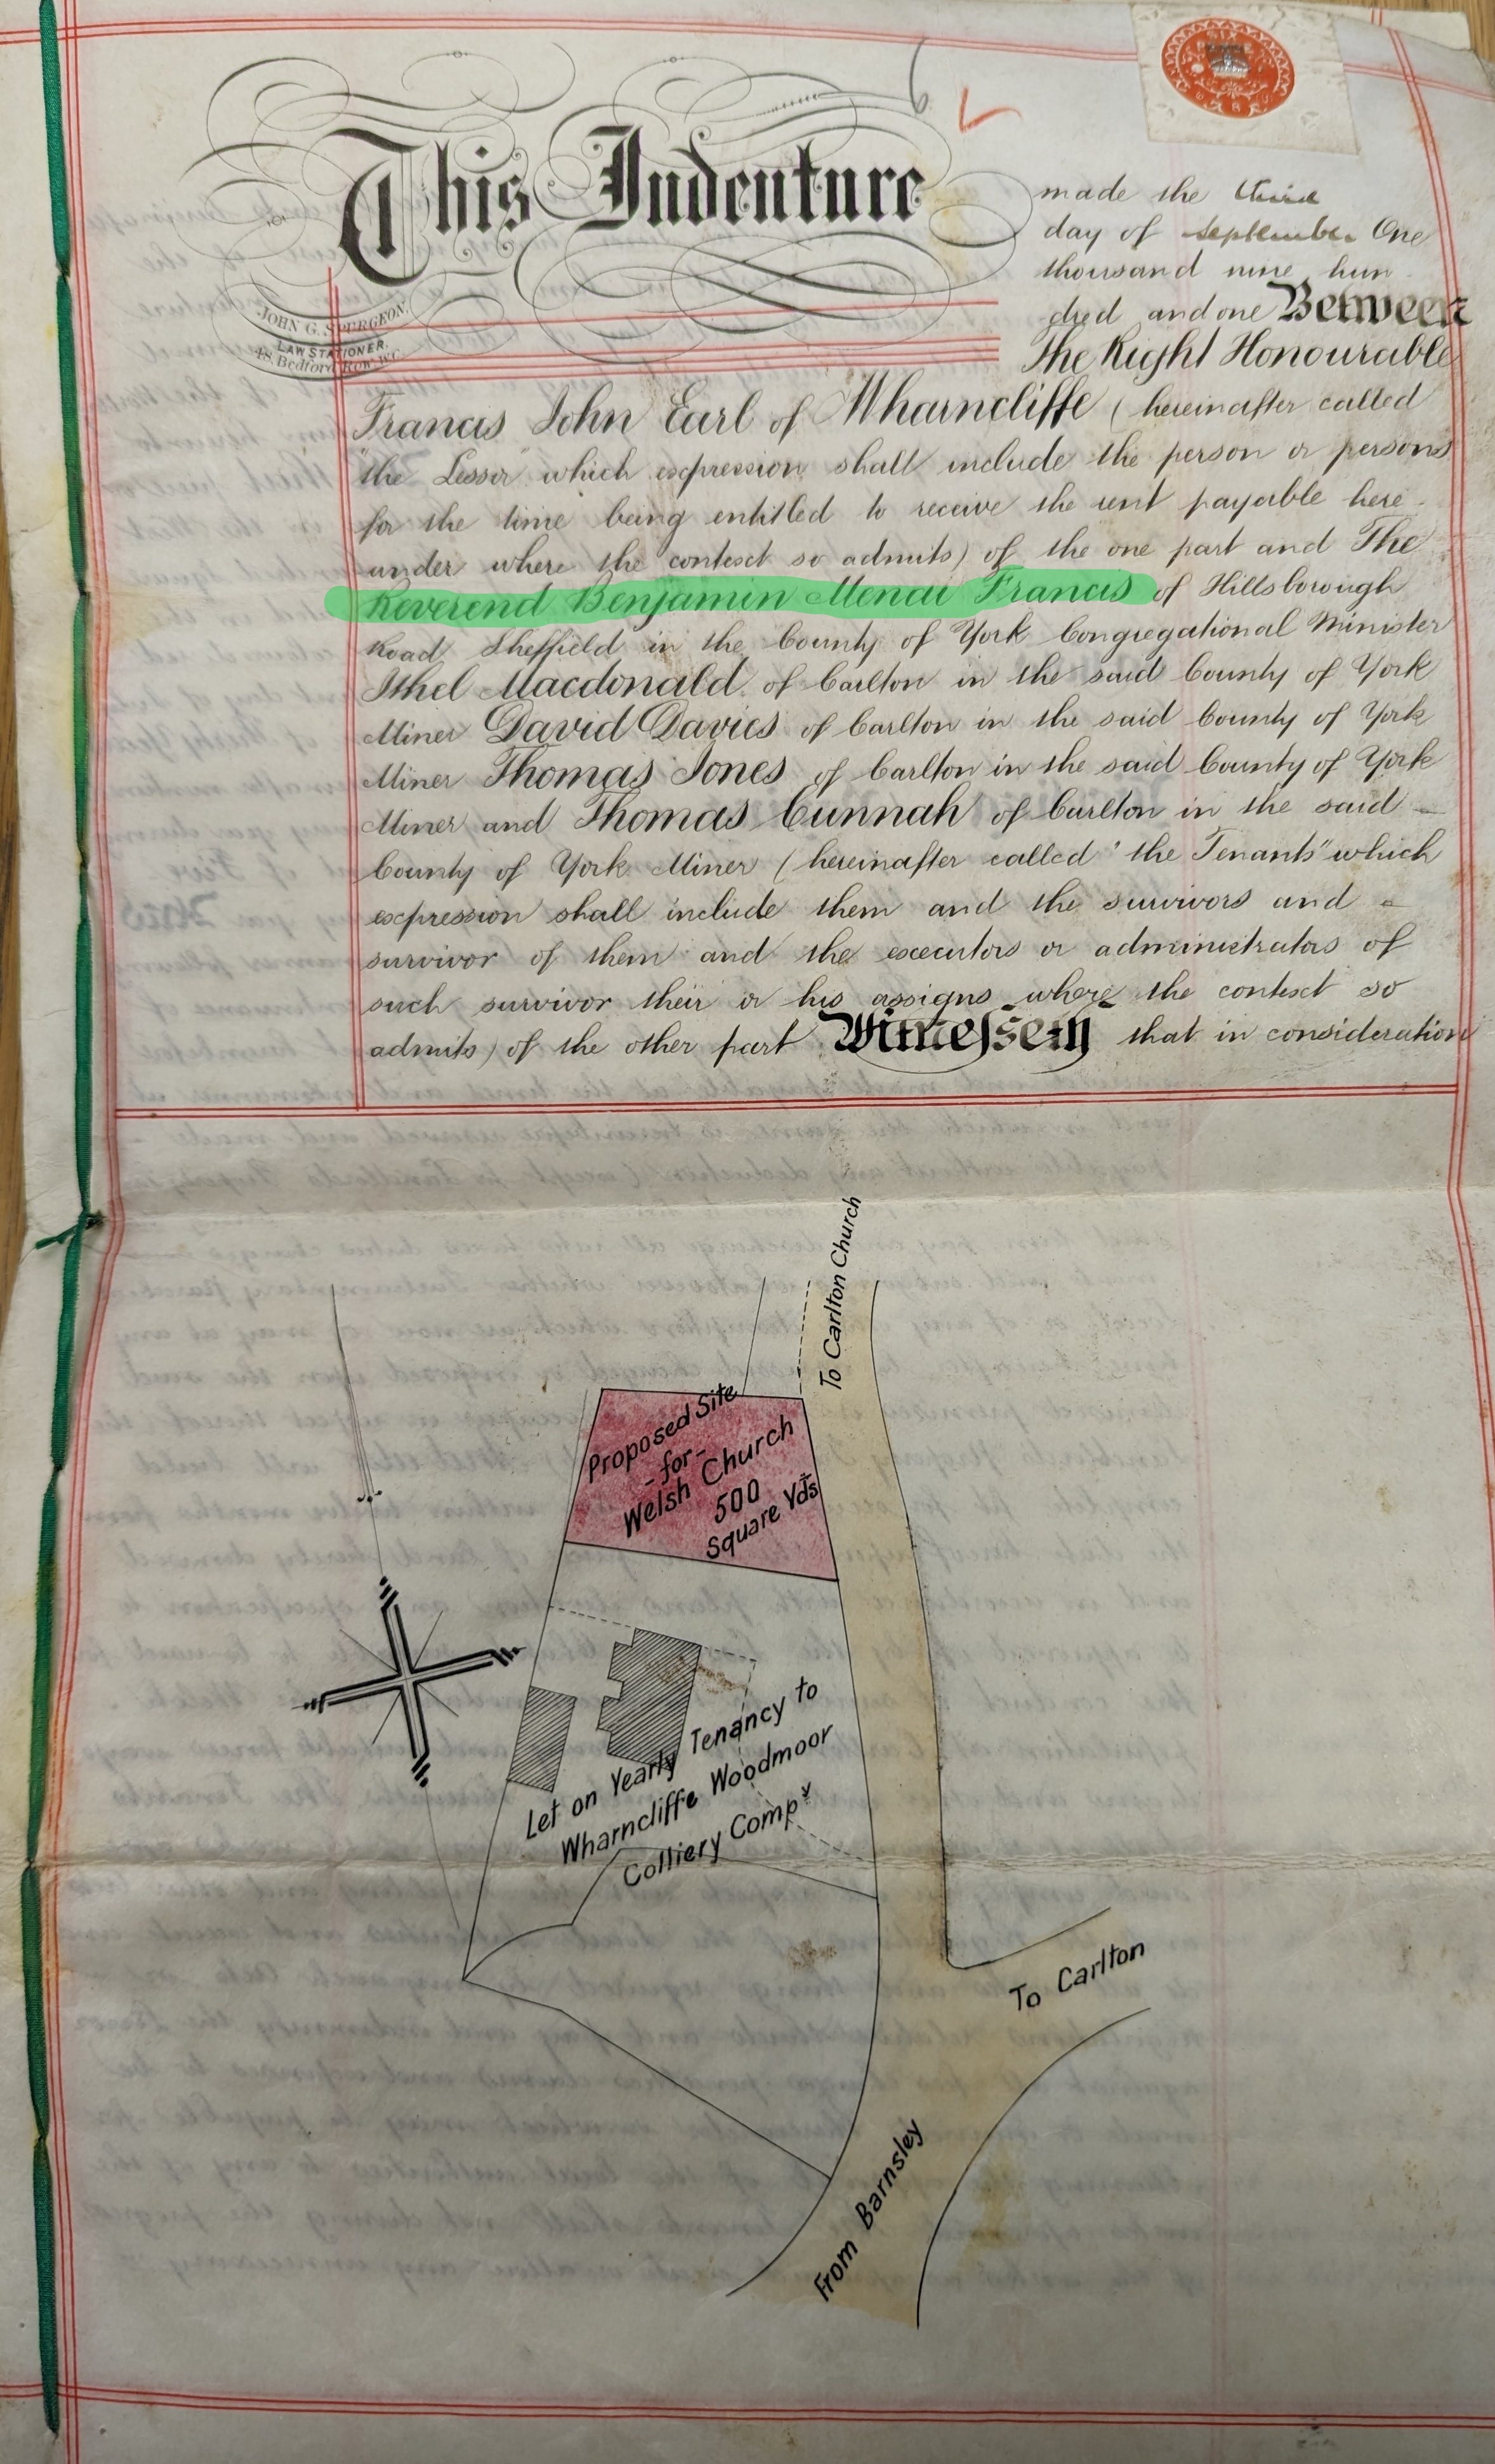 This Indenture made the third
day of September One
thousand nine hun
dred and one Between
The Right Honourable
JOHN G. SPURGEON,
LAW STATIONER.
18 Bedford Row, W.C.
Francis John Earl of Wharncliffe (hereinafter called
"the Lessor" which expression shall include the person or persons
for the time being entitled to receive the rent payable here-
under where the context so admits) of the one part and The
Reverend Benjamin Menai Francis of Hillsborough
Road Sheffield in the County of York Congregational Minister
Ithel Macdonald of Carlton in the said County of York
Miner David Davies of Carlton in the said County of York
Miner Thomas Jones of Carlton in the said County of York
Miner and Thomas Cunnah of Carlton in the said
County of York Miner (hereinafter called "the Tenants" which
expression shall include them and the survivors and
survivor of them and the executors or administrators of
such survivor their or his assigns where the context so
admits) of the other part Witnesseth that in consideration
To Carlton Church
Proposed Site
-for-
Welsh Church
500
Square Yds
Let on Yearly Tenancy to
Wharncliffe Woodmoor
Colliery Compy
To Carlton
From Barnsley